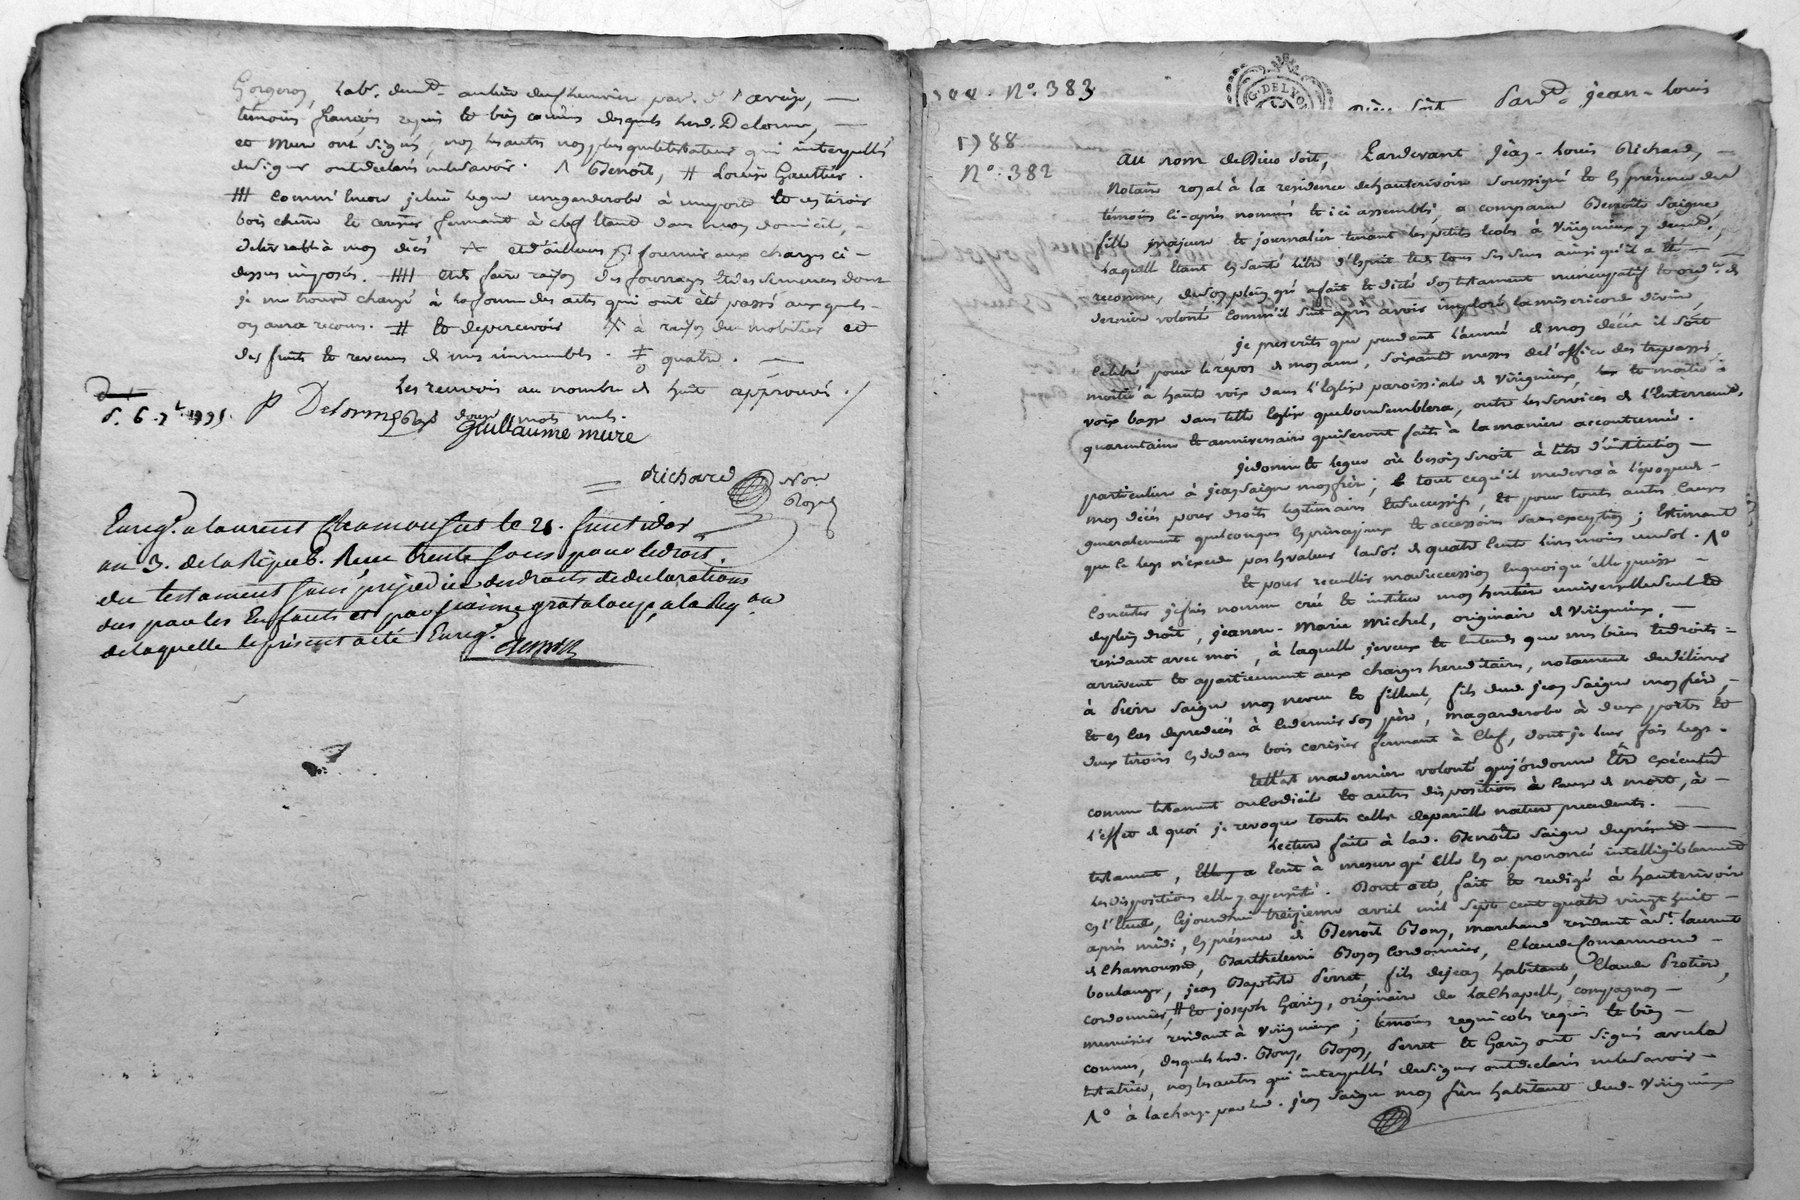 Gorgeron, lab. dem.t au lieu du par. d. l'avenize, —
témoins français requis et bien connus desquels led. Delorme, —
et Mure ont signés, non les autres non plus que le testateur qui interpellés
de signer ont declarés ne le savoir. Λ Benoit, # Louise Gauthier.
⧻ comm' encor je lui legue une garderobe à une porte et un tiroir
bois chêne et cerisier fermant à clef étant dans mon domicil, -
delivrable à mon décès et d'ailleurs fournir aux charges ci-
dessus imposés. et de faire raison des fourrages et des semences dont
je me trouve chargé à la forme des actes qui ont été passé auxquels-
on aura recours. # et de percevoir à raison du mobilier et
des fruits et revenus de mes immeubles. quatre. —
Les renvois au nombre de huit approuvés. /
d. 6. 7.e 1795.
P Delorme douze mots nuls.
Guillaume mure
Richard Not
Royal
Enreg.é a Laurent Chamousset le 21. fructidor
an 3. de la Répub. Reçu trente sous pour le droit
du testament sans préjudice des droits de declarations
dus par les Enfants et par jeanne grataloup, a la Reg.on
de laquelle le présent a été Enreg.é
N.o 383
G. DE LYON
Pard.t jean-Louis
1788
N.o 382
Au nom de Dieu soit, Pardevant Jean-Louis Richard, —
Notaire royal à la residence de hauterivoire soussigné et en présence des
témoins ci-après nommés et ici assemblés, a comparu Benoîte Saigne
fille majeure et journaliere tenant les petites écoles à Virigneux y demeur.t,
Laquelle étant en santé libre d'esprit et de tous ses sens ainsi qu'il a été —
reconnu, de son plein gré a fait et dicté son testament nuncupatif et ord.ce de
derniere volonté comm'il suit après avoir imploré la misericorde divine,
je prescrits que pendant l'année de mon décès il soit
celebré pour le répos de mon ame, soixante messes de l'office des trepassés
moitié à haute voix dans l'Eglise paroissiale de Virigneux, et moitié à
voix basse dans telle Eglise que bon semblera, outre les services de l'Enterrement,
quarantaine et anniversaire qui seront faits à la maniere accoutumée.
je donne et legue où besoin seroit à titre d'institution —
particuliere à jean Saigne mon frère; tout ce qu'il me devra à l'époque de-
mon décès pour droits legitimaires et successifs, et pour touts autres causes
generalement quelconques en principaux et accessoires sans exception; Estimant
que le legs n'excede pas en valeur la so.e de quatre cents livres moins un sol. Λ°
et pour recueillir ma succession en quoi qu'elle puisse —
consister je fais nomme crée et institue mon heritiere universelle seul et
de plein droit, jeanne-Marie Michel, originaire de Virigneux, —
residant avec moi, à laquelle je veux et entends que mes biens et droits-
arrivent et appartiennent aux charges hereditaires, notament de délivrer
à Pierre Saigne mon neveu et filleul, fils dud. jean Saigne mon frère, -
et en cas de predécès à ce dernier son père, ma garderobe à deux portes et
deux tiroirs en dedans bois cerisier fermant à clef, dont je leur fais legs.
telle est ma derniere volonté que j'ordonne être exécutée
comme testament ou codicile et autres dispositions à cause de mort, à —
l'effet de quoi je revoque touts celles de pareille nature precedents. —
Lecture faite à lad. Benoîte Saigne du présent —
testament, écrit à mesure qu'elle en a prononcé intelligiblement
les dispositions elle y a persisté. Dont acte, fait et redigé à hauterivoire
en l'étude, cejourd'hui treizieme avril mil sept cent quatre vingt huit —
après midi, en présence de Benoit Bony, marchand residant à S.t Laurent
de chamousset, Barthelemi Boyer cordonnier, Claude Comarmond —
boulanger, jean Baptiste Perret fils de jean habitant, Claude Protiere,
cordonnier, # et joseph Garin, originaire de La Chapelle, compagnon —
menuisier residant à Virigneux; témoins regnicoles requis et bien —
connus, desquels led. Bony, Boyer, Perret et Garin ont signés avec la
testatrice, non les autres qui interpellés de signer ont declarés ne le savoir —
Λ° à la charge par led. jean Saigne mon frère habitant dud. Virigneux